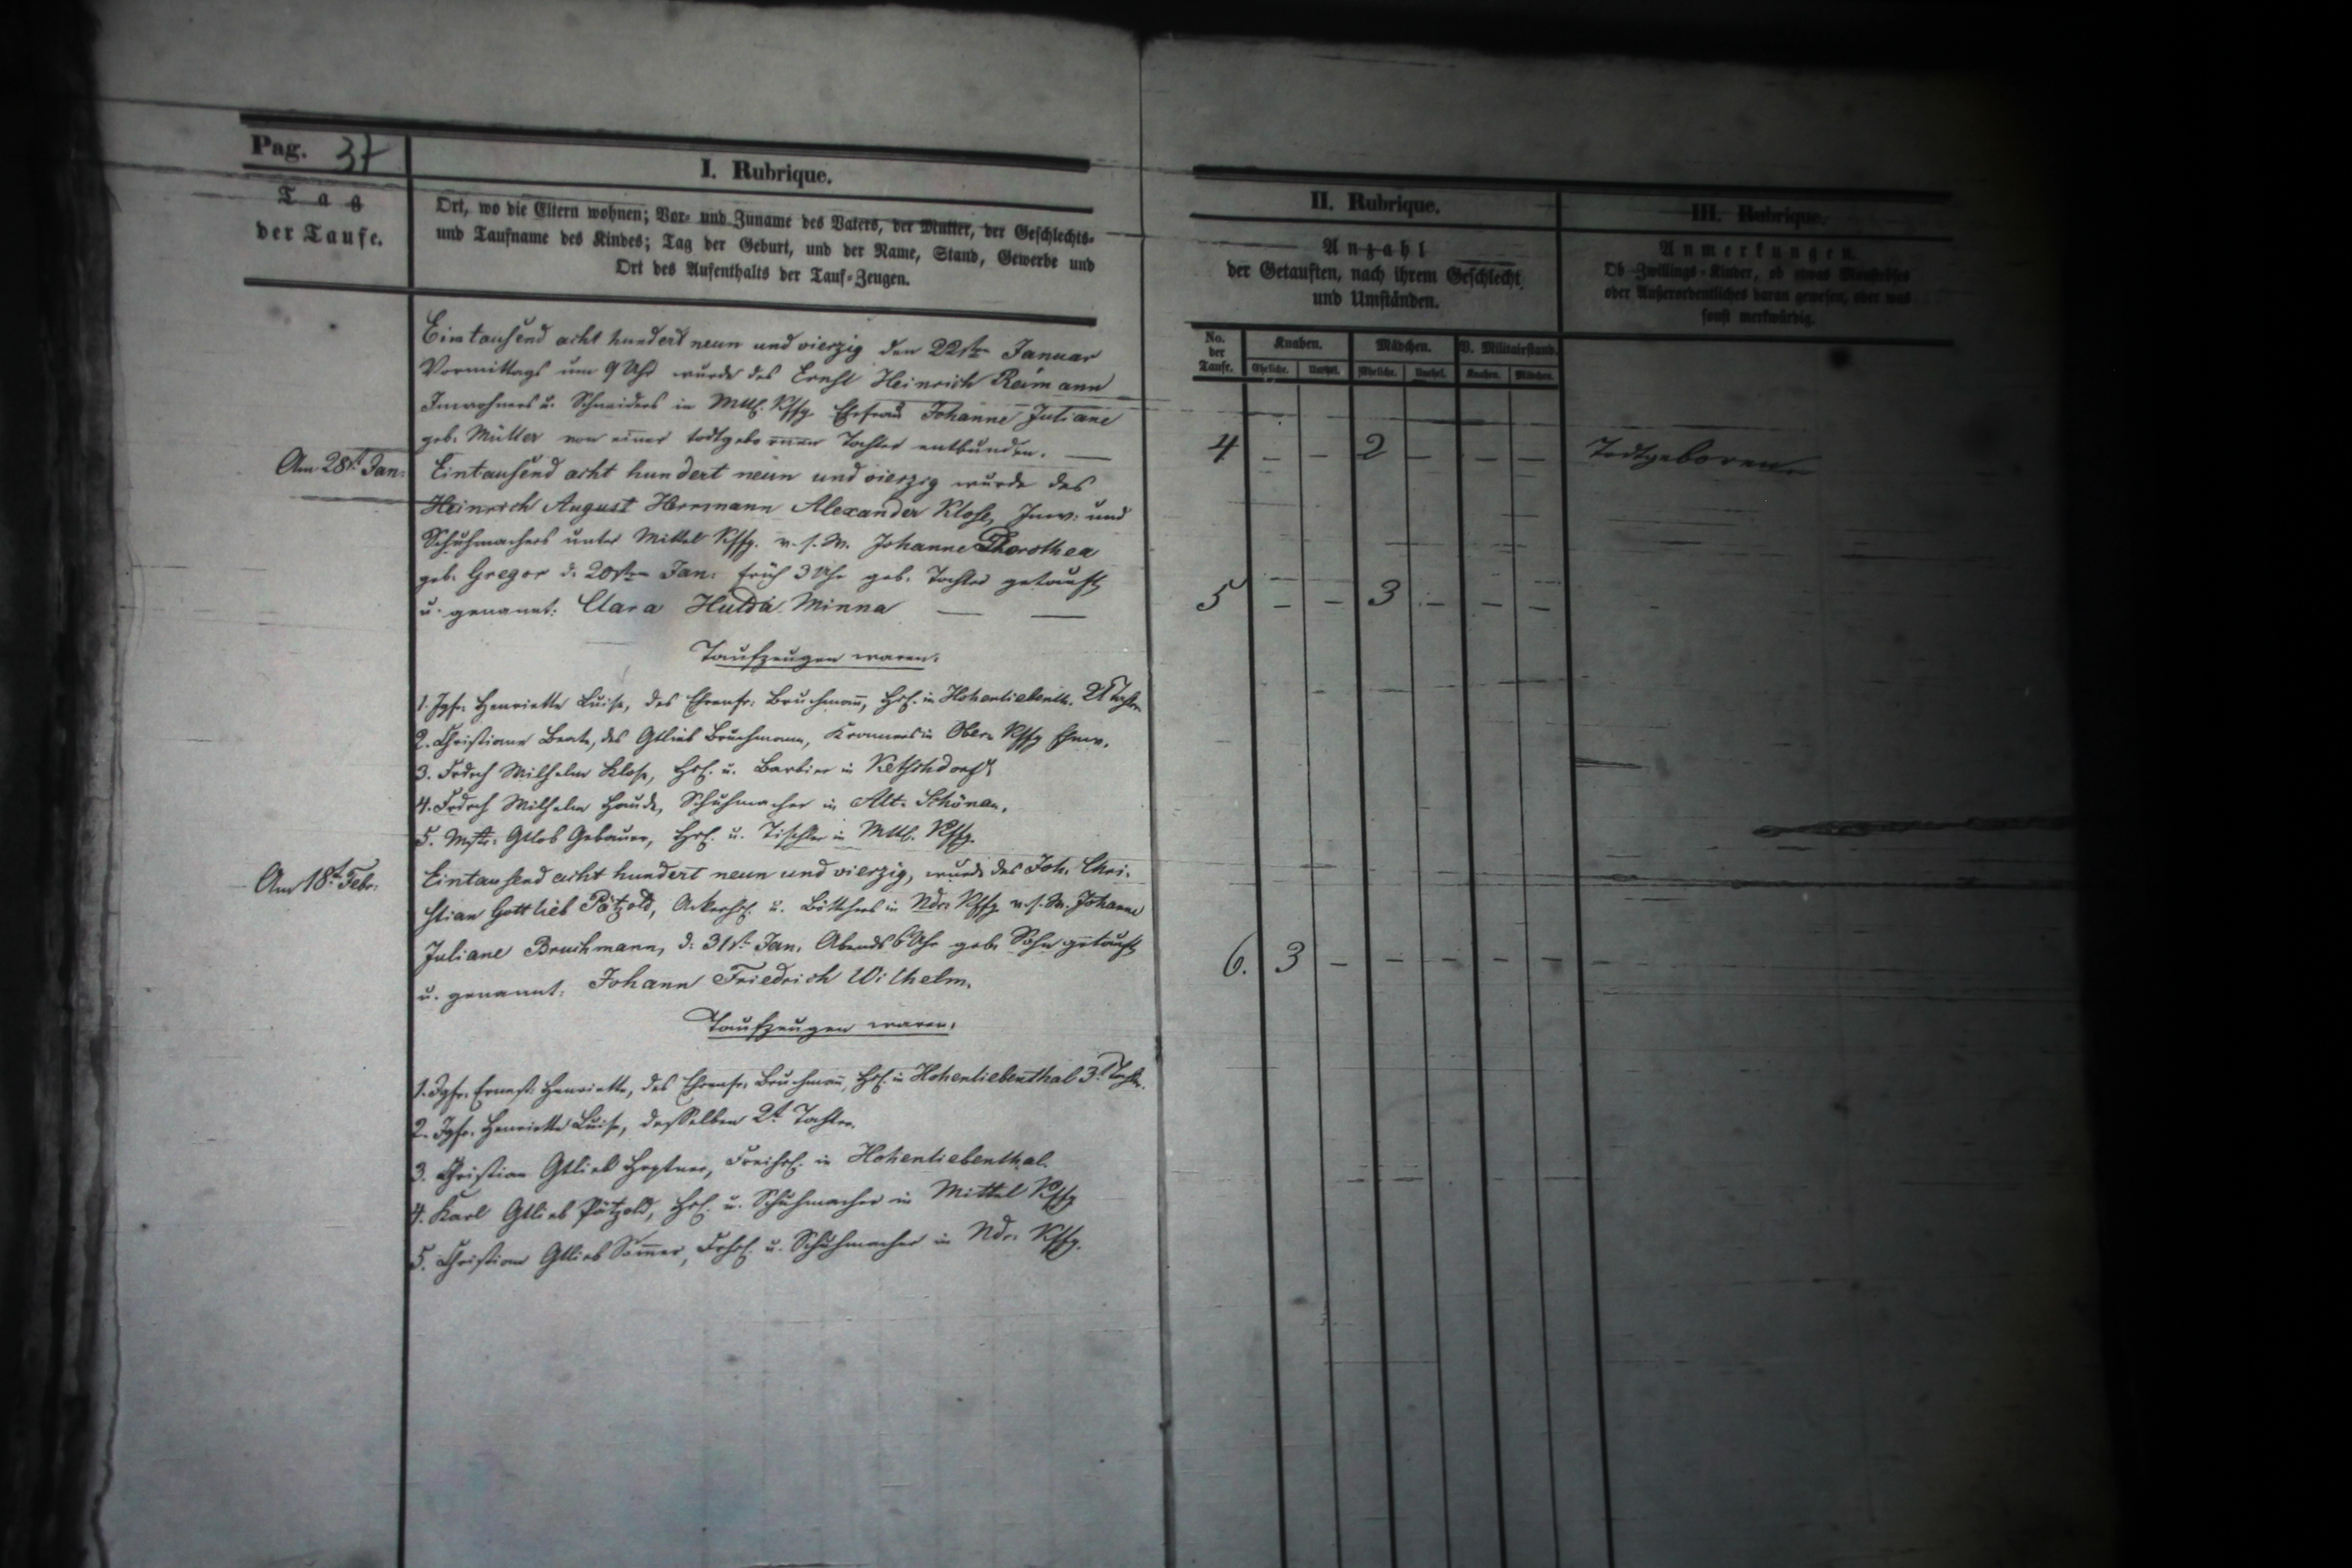 Pag. 37
I. Rubrique.
Tag
der Taufe.
Ort, wo die Eltern wohnen; Vor- und Zuname des Vaters, der Mutter, der Geschlechts-
und Taufname des Kindes; Tag der Geburt, und der Name, Stand, Gewerbe und
Ort des Aufenthalts der Tauf-Zeugen.
Eintausend acht hundert neun und vierzig den 22sten Januar
Vormittags um 9 Uhr wurde des Ernst Heinrich Reimann
Inwohners u. Schneiders in Mttl. Kffg. Ehefrau Johanne Juliane
geb. Müller von einer todtgebornen Tochter entbunden. —
Am 28st. Jan.
Eintausend acht hundert neun und vierzig wurde des
Heinrich August Herrmann Alexander Klose, Inw. und
Schuhmachers unter Mittel Kffg. v. s. W. Johanne Dorothea
geb. Gregor d. 20sten Jan. früh 3 Uhr geb. Tochter getauft
u. genannt: Clara Hulda Minna — —
Taufzeugen waren:
1. Jgfr. Henriette Luise, des Ehrenfr. Bruchmann, Hsl. in Hohenliebenth. 2t Tochter
2. Christiane Beate, des Gtlieb Bruchmann, in Ober Kffg
3. Fedrch Wilhelm Klose, Hsl. u. Barbier in Ketschdorf
4. Fedrch Wilhelm Haude, Schuhmacher in Alt-Schönau.
5. Mstr. Gtlob Gebauer, Hsl. u. Tischler in Mttl. Kffg.
Am 18t. Febr.
Eintausend acht hundert neun und vierzig, wurde des Joh. Chri-
stian Gottlieb Pätzold, Ackerhsl. u. Böttchers in Ndr. Kffg v. s. W. Johanne
Juliane Bruchmann, d. 31st. Jan. Abends 6 Uhr geb. Sohn getauft
u. genannt: Johann Friedrich Wilhelm.
Taufzeugen waren:
1. Jgfr. Ernest. Henriette, des Ehrenfr. Bruchmann, Hsl. in Hohenliebenthal 3t Tochter.
2. Jgfr. Henriette Luise, desselben 2t Tochter.
3. Christian Gtlieb, Freihsl. in Hohenliebenthal.
4. Karl Gtlieb Pätzold, Hsl. u. Schuhmacher in Mittel Kffg
5. Christian Gtlieb Sommer, Frhsl. u. Schuhmacher in Ndr. Kffg.
II. Rubrique.
Anzahl
der Getauften, nach ihrem Geschlecht
und Umständen.
No. der Taufe.
Knaben. Mädchen. V. Militairstand.
Eheliche. Unehel. Eheliche. Unehel. Knaben. Mädchen.
4 — — 2 — — —
5 — — 3 — — —
6. 3 — — — — —
III. Rubrique.
Anmerkungen.
Ob Zwillings-Kinder, ob etwas Monströses
oder Außerordentliches daran gewesen, oder was
sonst merkwürdig.
Todtgeboren